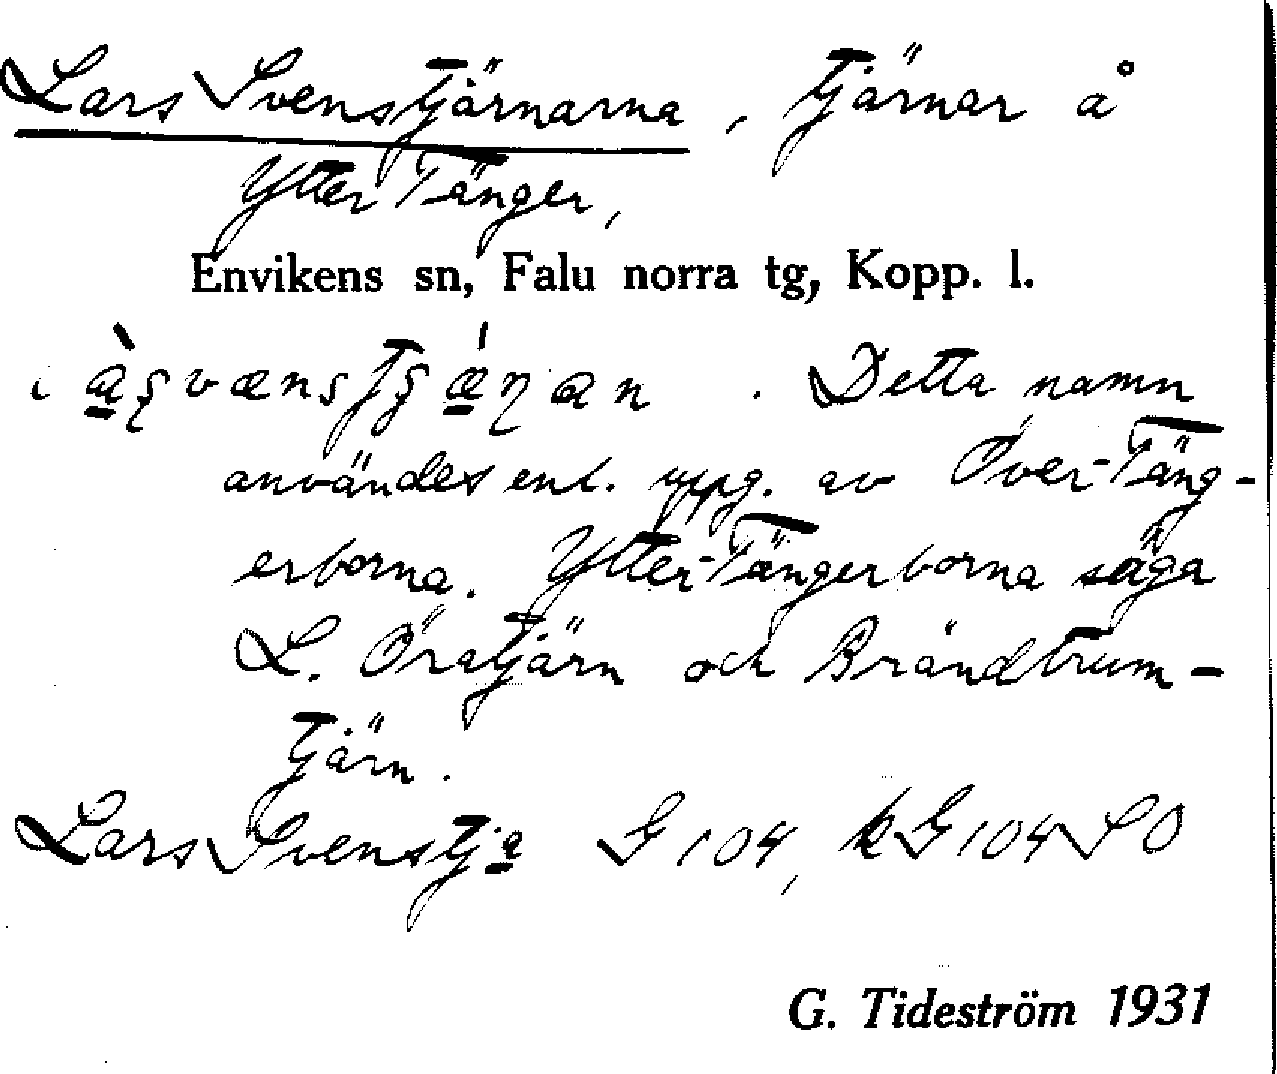 Lars Svenstjärnarna, tjärnar å
Ytter Tänger,
Envikens sn, Falu norra tg, Kopp. l.
Detta namn
användes enl. uppg. av Över-Täng-
erborna. Ytter-Tängerborna säga
L. Öratjärn och Brändtrum-
tjärn.
Lars Svenstja G 104, kG 104 SO
G. Tideström 1931